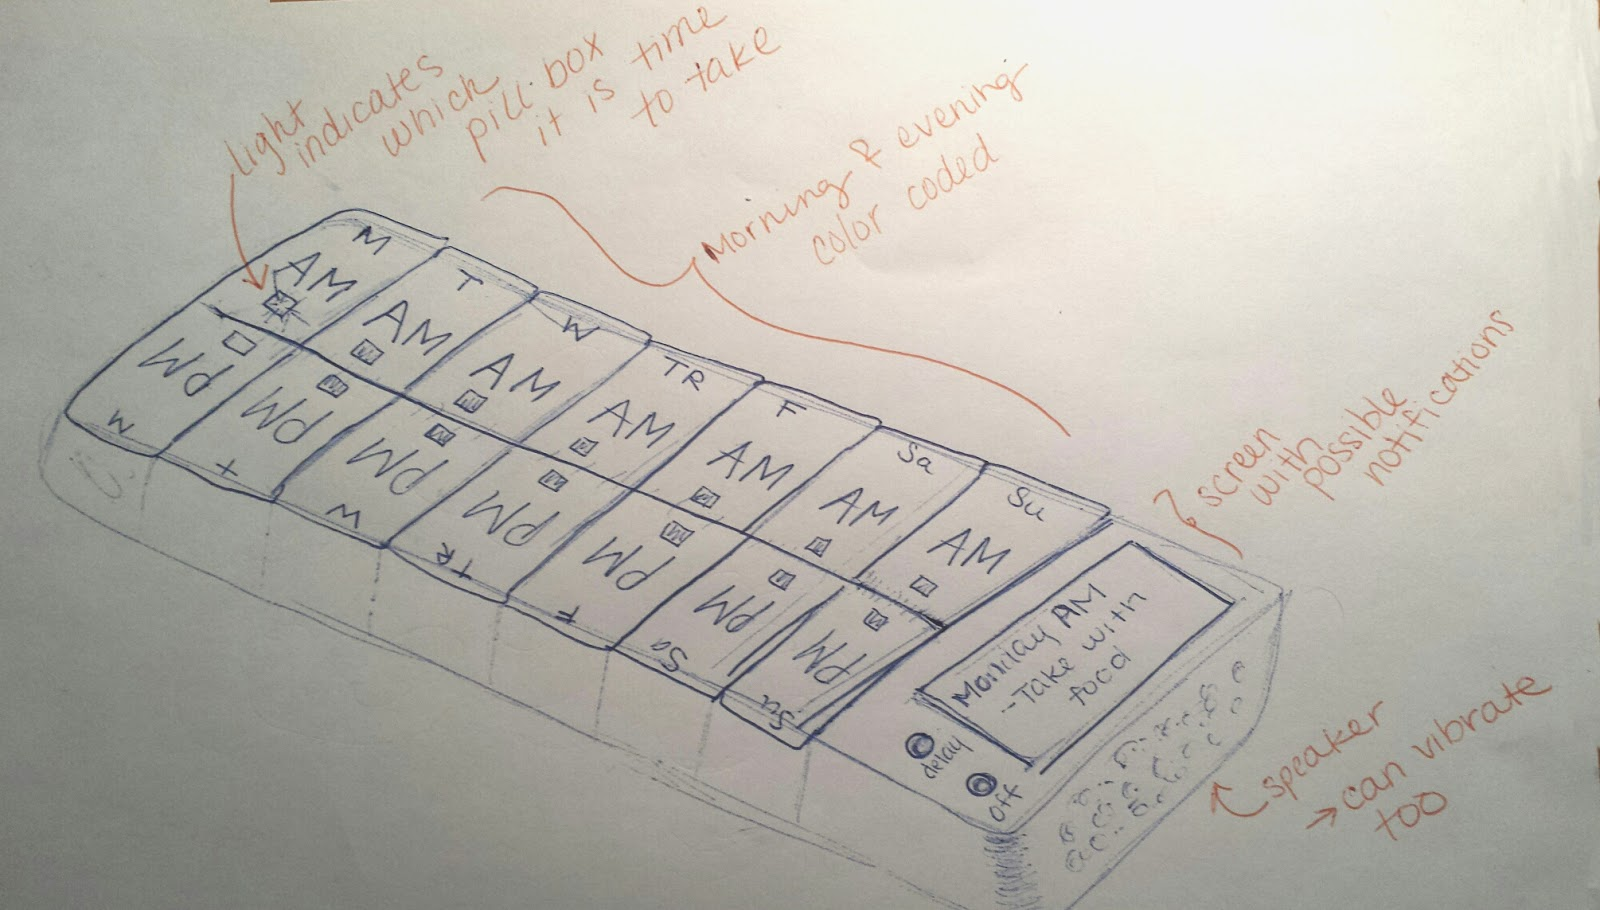 Light
indicates
which
pill box
it is time
to take
Morning & evening
color coded
M
T
W
TR
F
Sa
Su
AM
AM
AM
AM
AM
AM
AM
PM
PM
PM
PM
PM
PM
PM
M
T
W
TR
F
Sa
Su
screen
with
possible
notifications
Monday AM
-Take with
food
delay
off
speaker
→ can vibrate
too